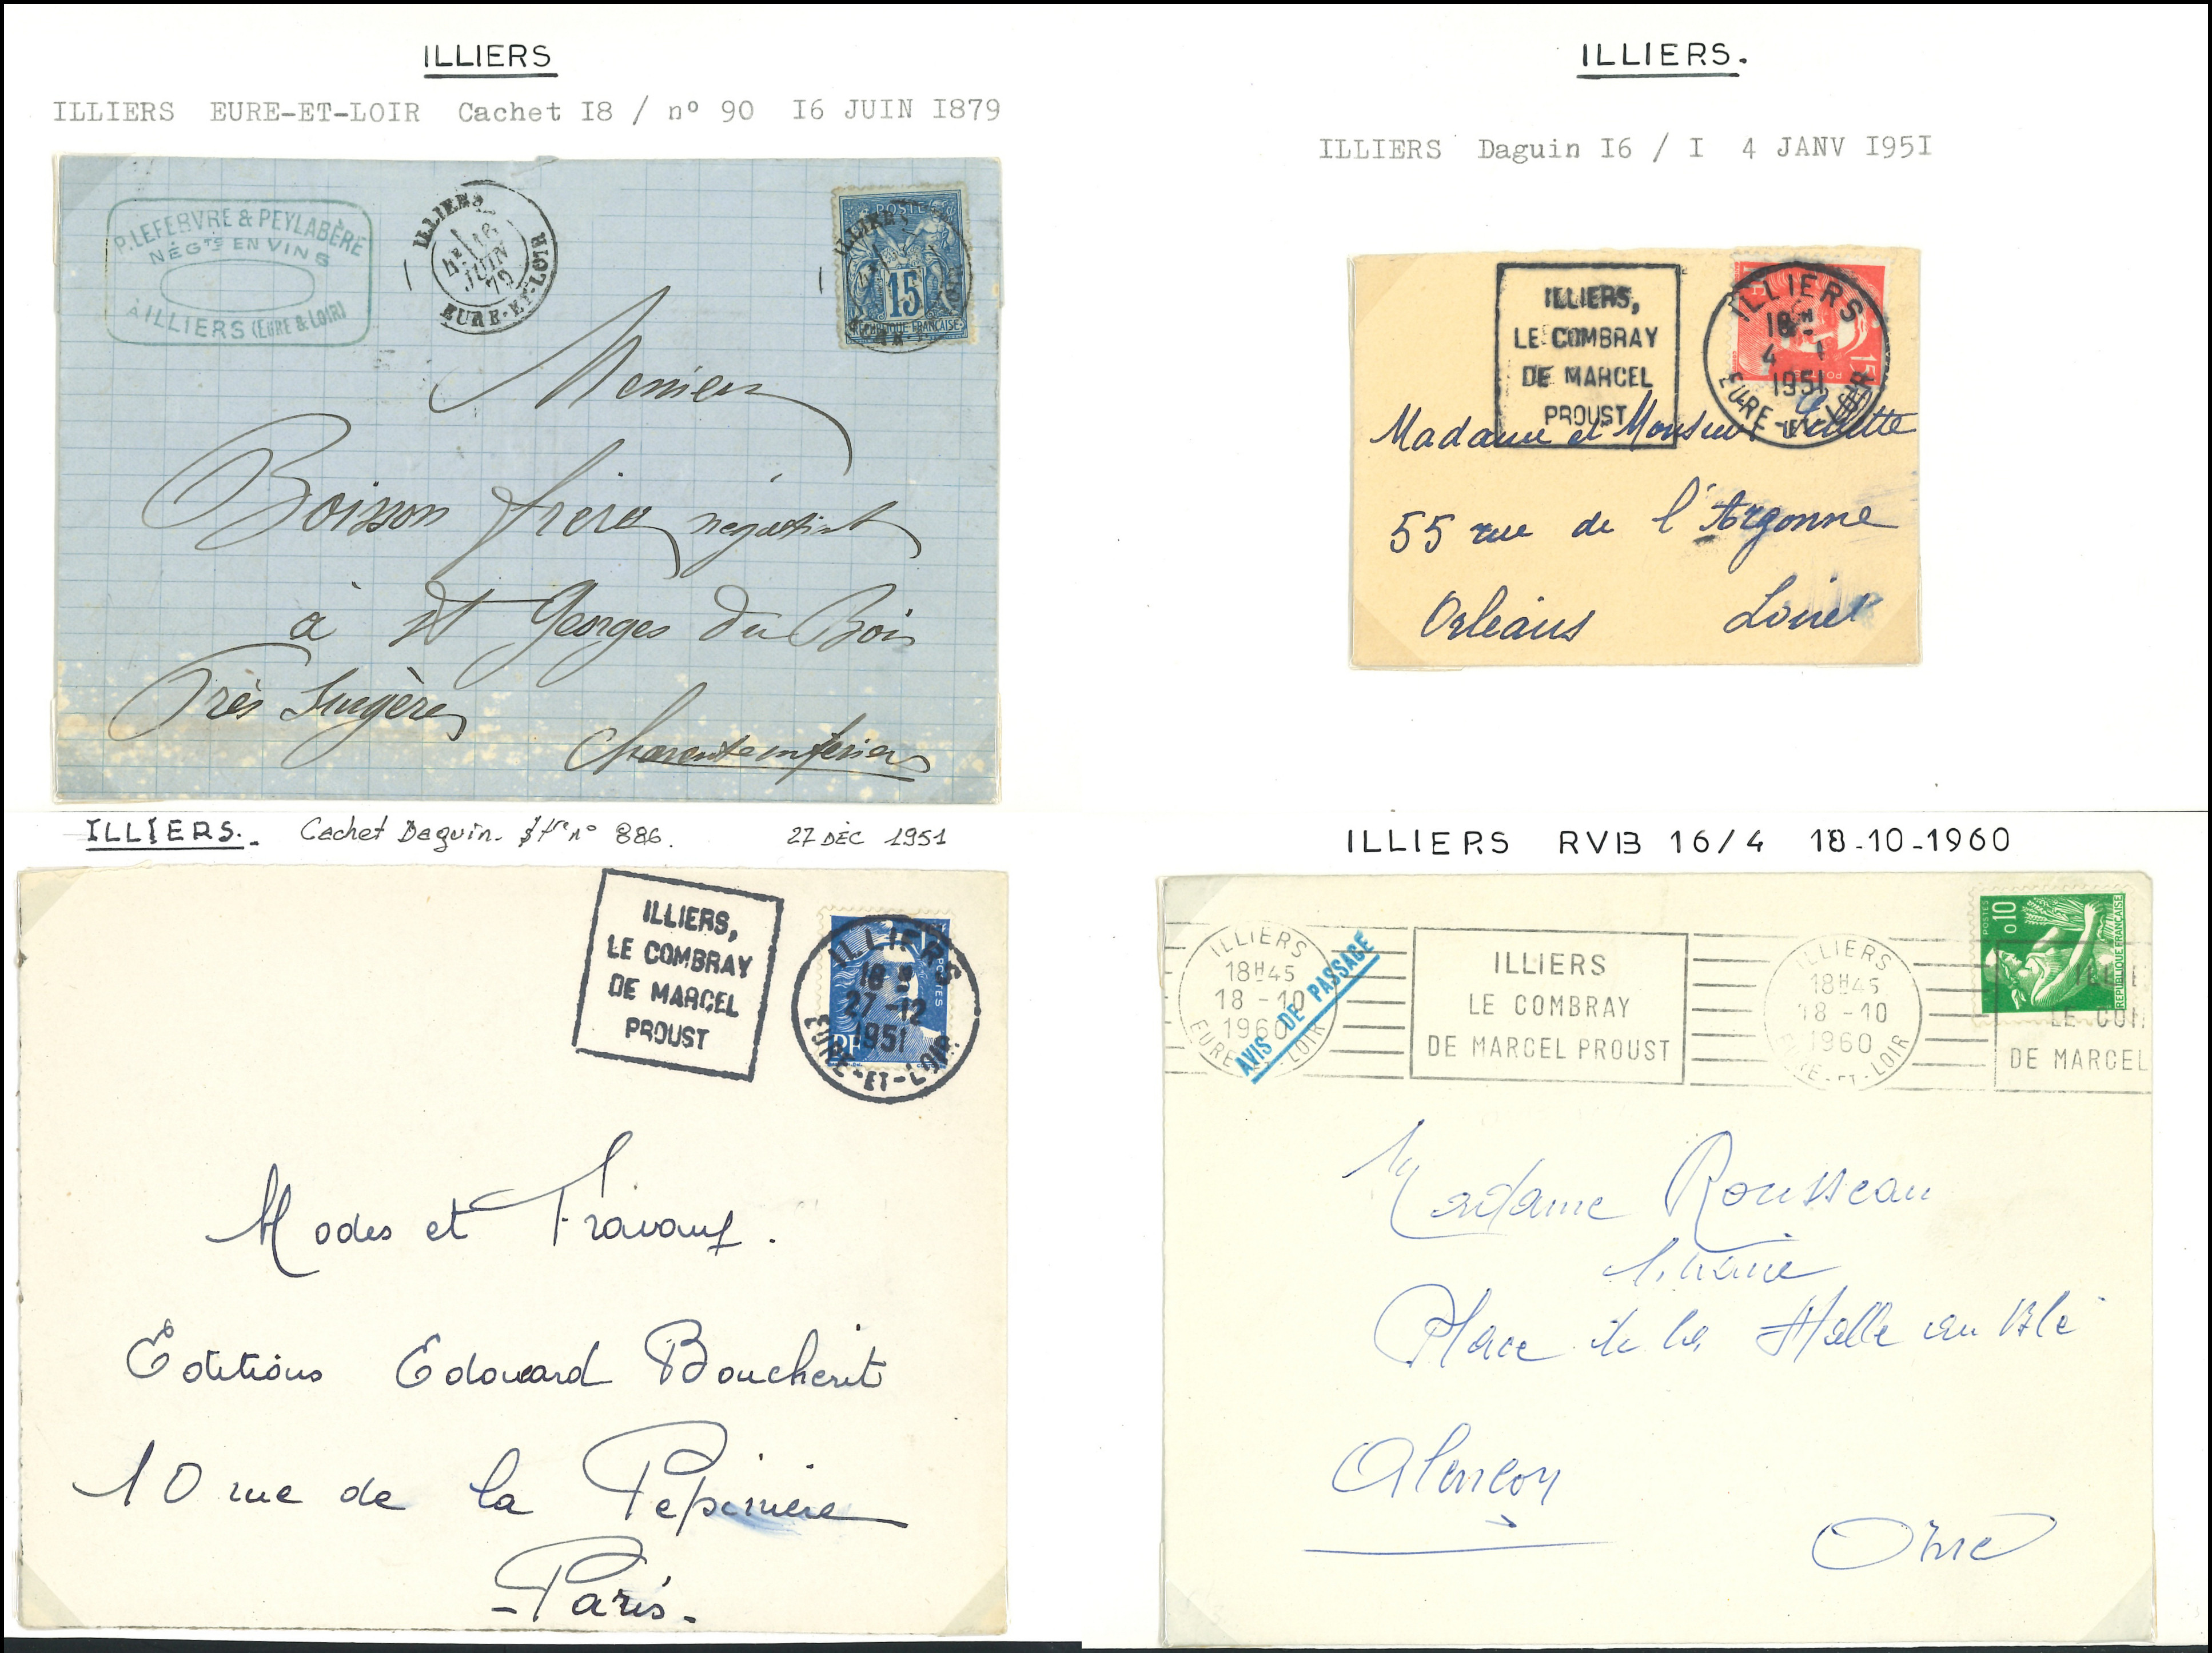 ILLIERS
ILLIERS EURE-ET-LOIR Cachet I8 / nº 90 I6 JUIN I879
P. LEFEBVRE & PEYLABÈRE
NÉGTS EN VINS
A ILLIERS (EURE & LOIR)
ILLIERS
16
JUIN
79
EURE-ET-LOIR
POSTE
15
REPUBLIQUE FRANÇAISE
ILLIERS
Messieurs
Boisson frères négociant
à St Georges du Bois
Près Surgères
Charente inferieure
ILLIERS.
ILLIERS Daguin I6 / I 4 JANV I95I
ILLIERS,
LE COMBRAY
DE MARCEL
PROUST
ILLIERS
18H
4 - 1
1951
EURE-ET-LOIR
15F
POSTES
Madame et Monsieur
55 rue de l'Argonne
Orléans Loiret
ILLIERS. Cachet Daguin. nº 886. 27 DÉC 1951
ILLIERS,
LE COMBRAY
DE MARCEL
PROUST
ILLIERS
18H
27-12
1951
EURE-ET-LOIR
POSTES
RF
Modes et Travaux.
Editions Edouard Boucherit
10 rue de la Pepinière
-Paris-
ILLIERS RVB 16/4 18-10-1960
ILLIERS
18H45
18-10
1960
EURE-ET-LOIR
AVIS DE PASSAGE
ILLIERS
LE COMBRAY
DE MARCEL PROUST
ILLIERS
18H45
18-10
1960
EURE-ET-LOIR
POSTES
0,10
REPUBLIQUE FRANÇAISE
ILLIE
LE COM
DE MARCEL
Madame Rousseau
Place de la Halle au Blé
Alençon
Orne